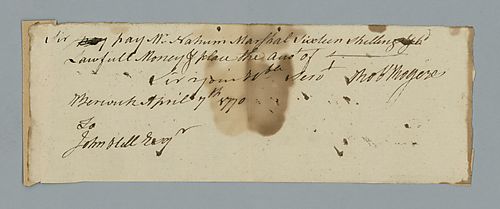 Sir pay Mr Nahum Marshal Sixteen Shillings
Lawfull Money & place the Acct of
Sir your Hble Servt Thos Higgens
Berwick April 7th 1770
To
John Hill Esqr